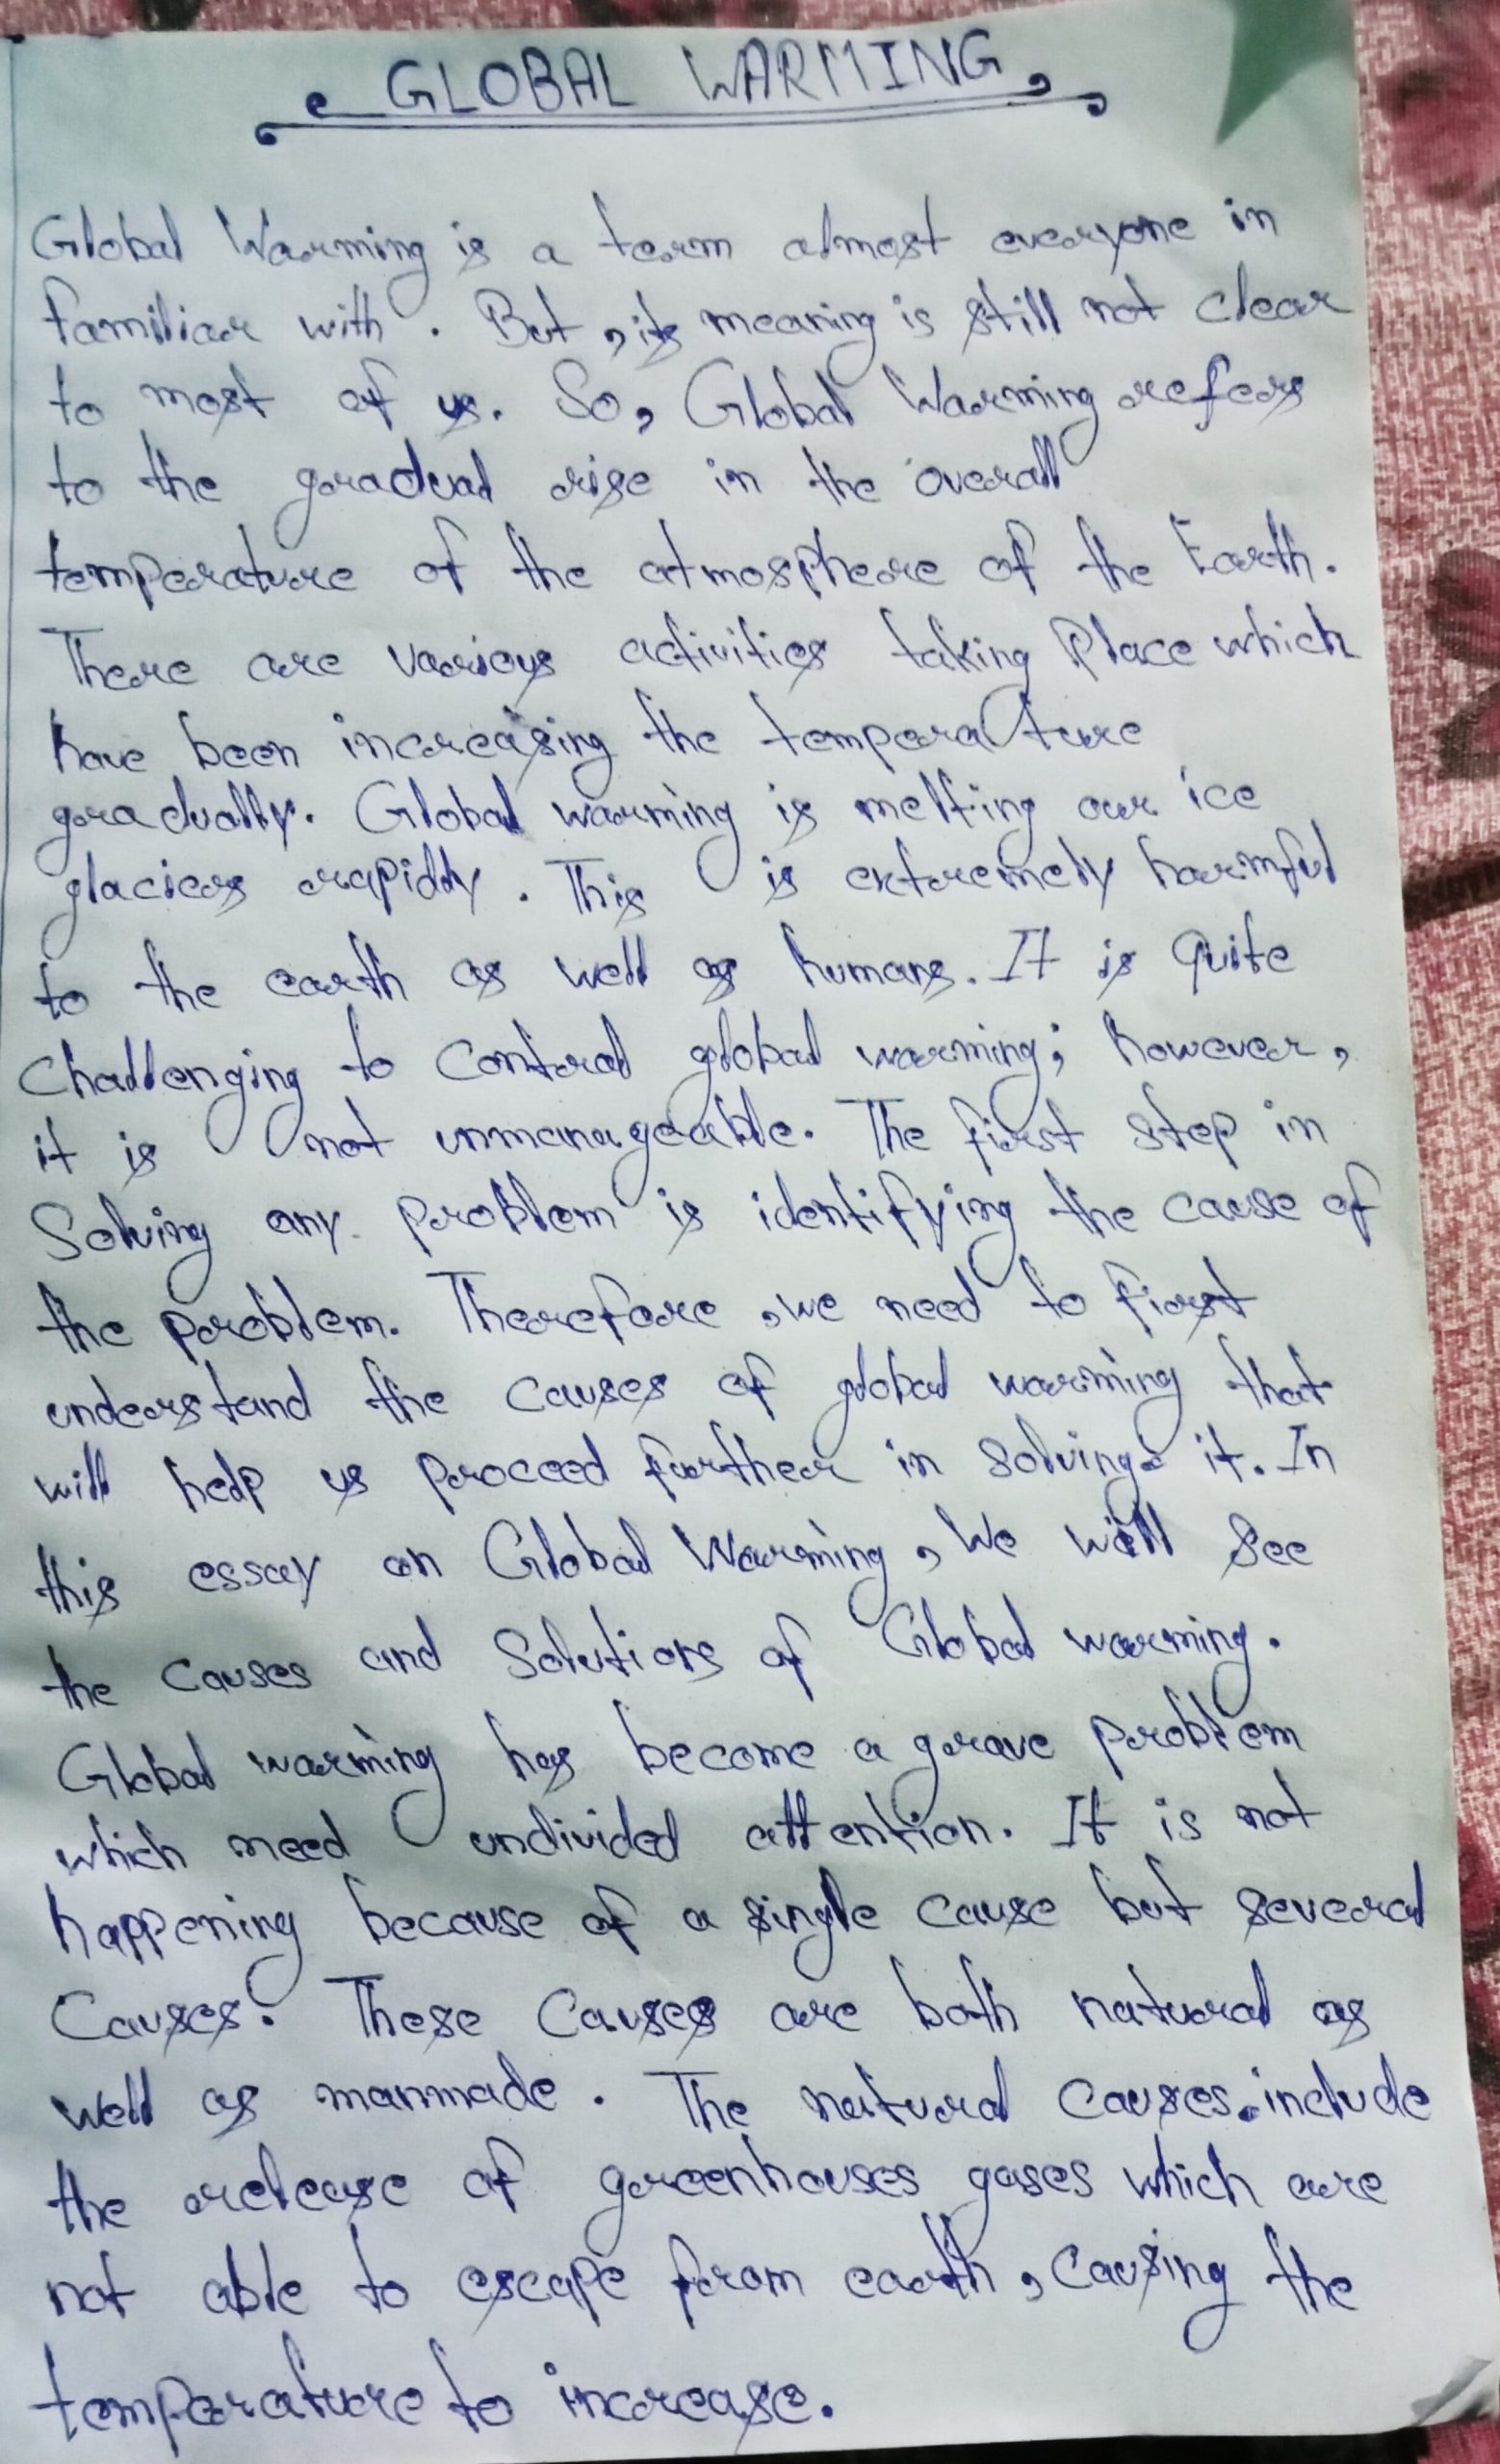 GLOBAL WARMING
Global Warming is a term almost everyone in
familiar with. But, its meaning is still not clear
to most of us. So, Global Warming refers
to the gradual rise in the overall
temperature of the atmosphere of the Earth.
There are various activities taking Place which
have been increasing the temperature
gradually. Global warming is melting our ice
glaciers rapidly. This is extremely harmful
to the earth as well as humans. It is Quite
Challenging to Control global warming; however,
it is not unmanageable. The first step in
Solving any problem is identifying the cause of
the problem. Therefore, we need to first
understand the causes of global warming that
will help us proceed further in Solving it. In
this essay on Global Warming, We will See
the Causes and Solutions of Global warming.
Global warming has become a grave problem
which need undivided attention. It is not
happening because of a single cause but several
Causes. These Causes are both natural as
well as manmade. The natural Causes include
the release of greenhouses gases which are
not able to escape from earth, Causing the
temperature to increase.